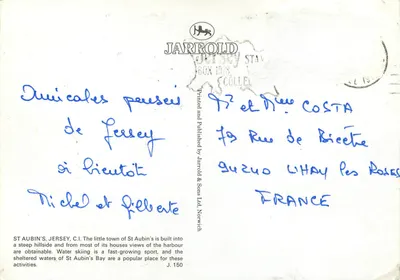 JARROLD
Amicales pensées
de Jersey
à bientôt
Michel et Gilberte
ST AUBIN'S, JERSEY, C.I. The little town of St Aubin's is built into
a steep hillside and from most of its houses views of the harbour
are obtainable. Water skiing is a fast-growing sport, and the
sheltered waters of St Aubin's Bay are a popular place for these
activities.
J. 150
Printed and Published by Jarrold & Sons Ltd, Norwich
JERSEY STA
BOX
COLLE
Mr et Mme COSTA
79 Rue de Bicêtre
94240 L'HAY les ROSES
FRANCE